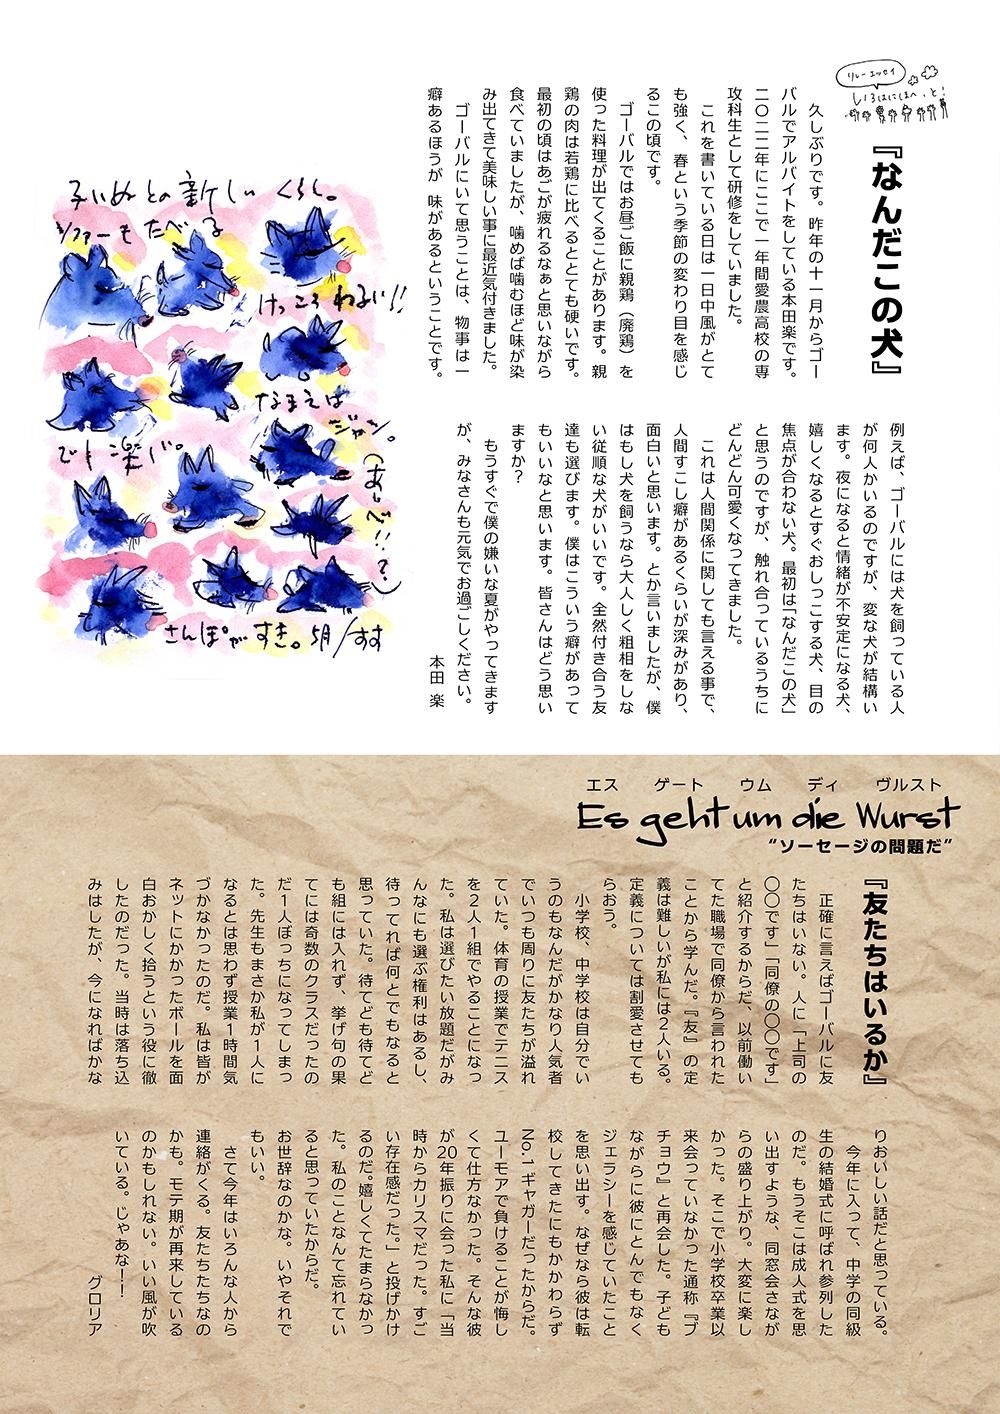 リレーエッセイ
いろはにほへっと!
『なんだこの犬』
久しぶりです。昨年の十一月からゴー
バルでアルバイトをしている本田楽です。
二〇二二年にここで一年間愛農高校の専
攻科生として研修をしていました。
これを書いている日は一日中風がとて
も強く、春という季節の変わり目を感じ
るこの頃です。
ゴーバルではお昼ご飯に親鶏（廃鶏）を
使った料理が出てくることがあります。親
鶏の肉は若鶏に比べるととても硬いです。
最初の頃はあごが疲れるなぁと思いながら
食べていましたが、噛めば噛むほど味が染
み出てきて美味しい事に最近気付きました。
ゴーバルにいて思うことは、物事は一
癖あるほうが 味があるということです。
例えば、ゴーバルには犬を飼っている人
が何人かいるのですが、変な犬が結構い
ます。夜になると情緒が不安定になる犬、
嬉しくなるとすぐおしっこする犬、目の
焦点が合わない犬。最初は「なんだこの犬」
と思うのですが、触れ合っているうちに
どんどん可愛くなってきました。
これは人間関係に関しても言える事で、
人間すこし癖があるくらいが深みがあり、
面白いと思います。とか言いましたが、僕
はもし犬を飼うなら大人しく粗相をしな
い従順な犬がいいです。全然付き合う友
達も選びます。僕はこういう癖があって
もいいなと思います。皆さんはどう思い
ますか？
もうすぐで僕の嫌いな夏がやってきます
が、みなさんも元気でお過ごしください。
本田 楽
子いぬとの新しいくらし。
ソファーもたべる
けっこうわるい!!
なまえは
ジャン。
(あしべ!!?)
でも楽しい。
さんぽがすき。5月/すす
エス ゲート ウム ディ ヴルスト
Es geht um die Wurst
“ソーセージの問題だ”
『友たちはいるか』
正確に言えばゴーバルに友
たちはいない。人に「上司の
〇〇です」「同僚の〇〇です」
と紹介するからだ、以前働い
てた職場で同僚から言われた
ことから学んだ。『友』の定
義は難しいが私には２人いる。
定義については割愛させても
らおう。
小学校、中学校は自分でい
うのもなんだがかなり人気者
でいつも周りに友たちが溢れ
ていた。体育の授業でテニス
を２人１組でやることになっ
た。私は選びたい放題だがみ
んなにも選ぶ権利はあるし、
待ってれば何とでもなると
思っていた。待てども待てど
も組には入れず、挙げ句の果
てには奇数のクラスだったの
だ１人ぼっちになってしまっ
た。先生もまさか私が１人に
なるとは思わず授業１時間気
づかなかったのだ。私は皆が
ネットにかかったボールを面
白おかしく拾うという役に徹
したのだった。当時は落ち込
みはしたが、今になればかな
りおいしい話だと思っている。
今年に入って、中学の同級
生の結婚式に呼ばれ参列した
のだ。もうそこは成人式を思
い出すような、同窓会さなが
らの盛り上がり。大変に楽し
かった。そこで小学校卒業以
来会っていなかった通称『ブ
チョウ』と再会した。子ども
ながらに彼にとんでもなく
ジェラシーを感じていたこと
を思い出す。なぜなら彼は転
校してきたにもかかわらず
No.1ギャガーだったからだ。
ユーモアで負けることが悔し
くて仕方なかった。そんな彼
が20年振りに会った私に「当
時からカリスマだった。すご
い存在感だった。」と投げかけ
るのだ。嬉しくてたまらなかっ
た。私のことなんて忘れてい
ると思っていたからだ。
お世辞なのかな。いやそれで
もいい。
さて今年はいろんな人から
連絡がくる。友たちたちなの
かも。モテ期が再来している
のかもしれない。いい風が吹
いている。じゃあな！！
グロリア